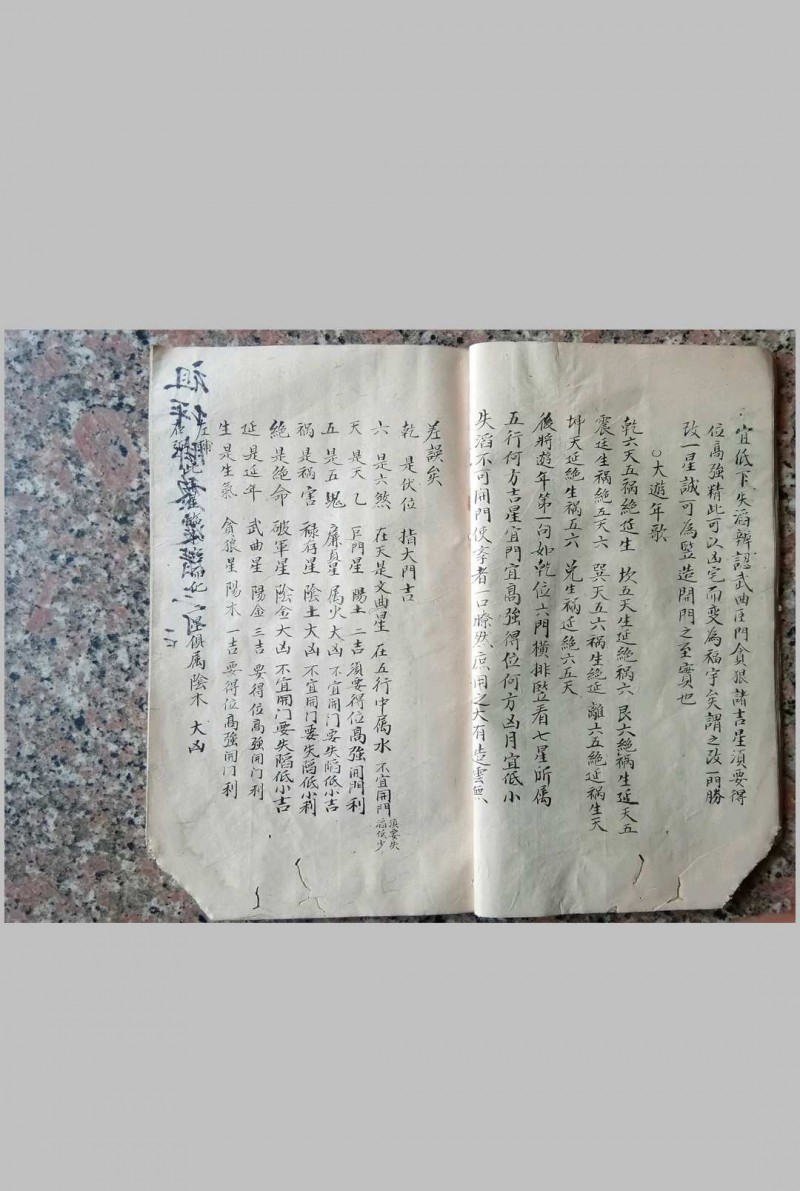 宜低下失滔辨認武曲巨門貪狼諸吉星須要得
位高強精此可以凶宅而变為福宇矣謂之改一門勝
改一星誠可為監造開門之至寶也
○大遊年歌
乾六天五禍絕延生 坎五天生延絕禍六 艮六絕禍生延天五
震延生禍絕五天六 巽天五六禍生絕延 離六五絕延禍生天
坤天延絕生禍五六 兌生禍延絕六五天
後將遊年第一句如乾位六門橫排竪看七星所属
五行何方吉星宜門宜高強得位何方凶月宜低小
失滔不可開門使孝者一口瞭然庶用之大有
差誤矣
乾 是伏位 指大門吉
六 是六煞 在天是文曲星 在五行中属水 不宜開門須要失滔低少
天 是天乙 巨門星 陽土 二吉須要得位高強開門利
五 是五鬼 廉貞星 属火大凶 不宜開门要失陷低小吉
禍 是禍害 禄存星 陰土大凶 不宜開门要失陷低小利
絕 是絕命 破軍星 陰金大凶 不宜開门要失陷低小吉
延 是延年 武曲星 陽金三吉 要得位高強開门利
生 是生氣 貪狼星 陽木 一吉 要得位高強開门利
俱属陰木 大凶